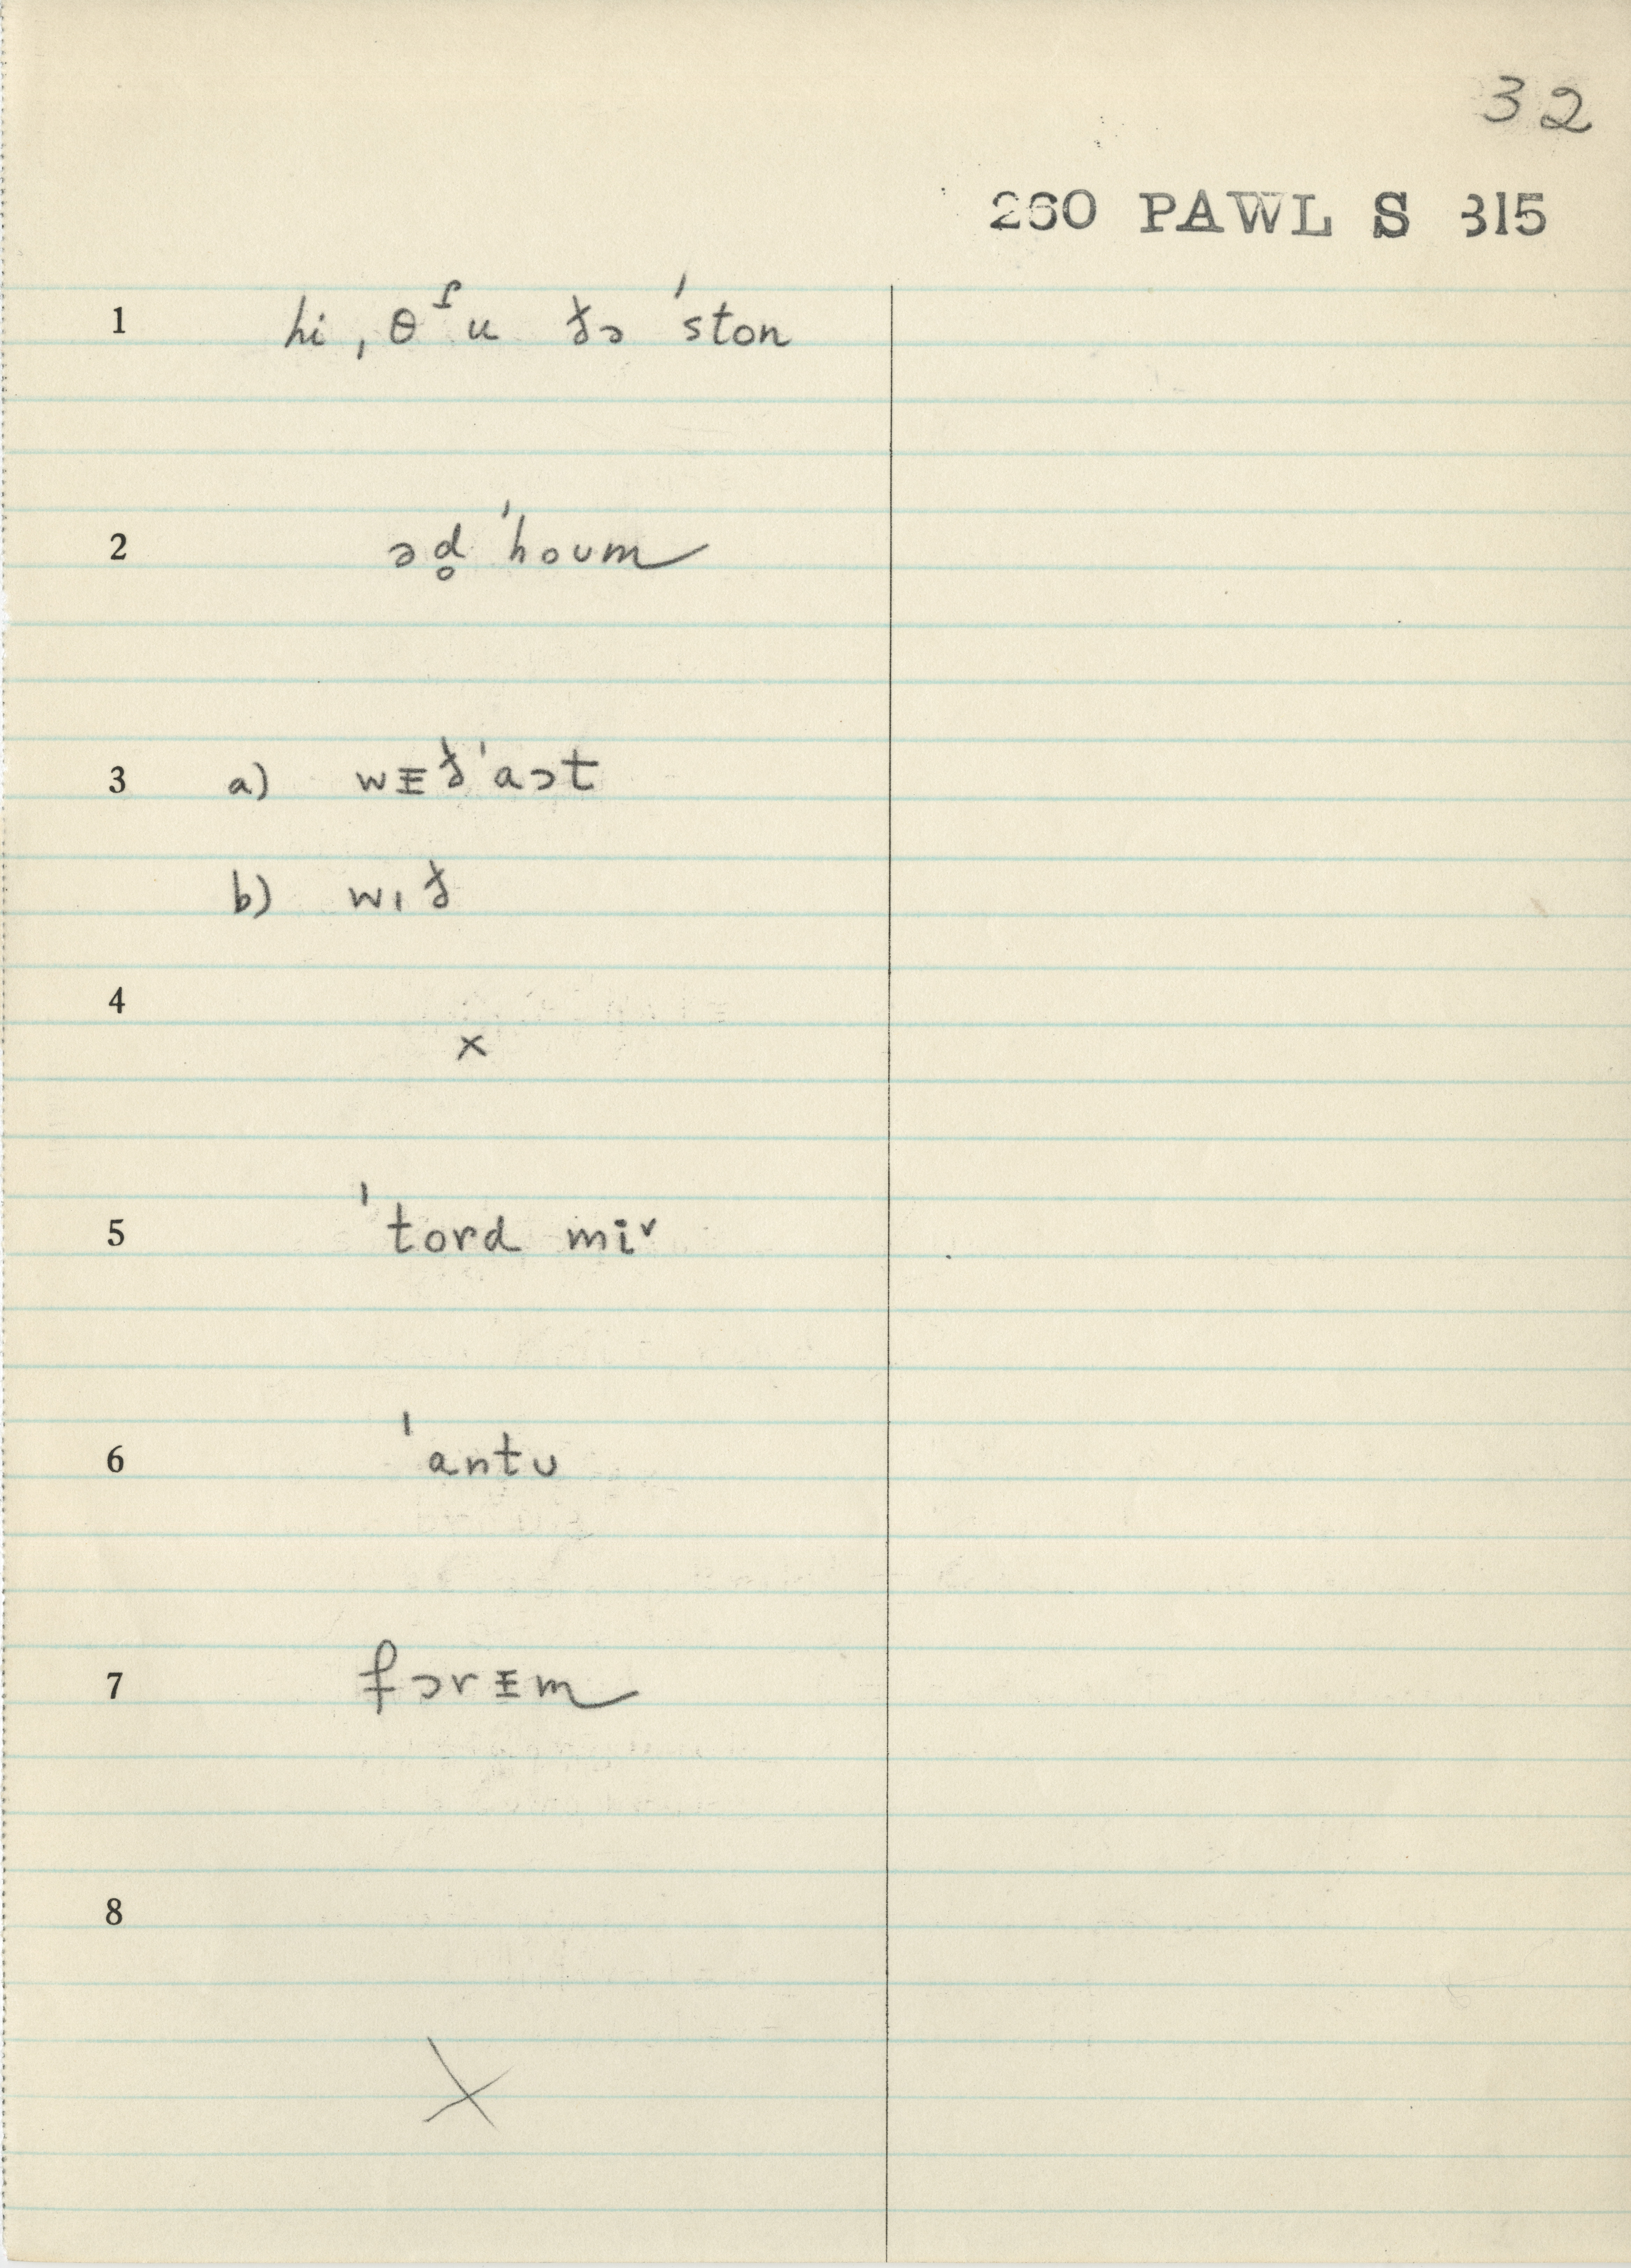 32
260 PAWL S 315
1 hi, θʳu ðə ˈston
2 əd̥ ˈhoum
3 a) wᵻðˈaət
b) wɪð
4 x
5 ˈtord miᵛ
6 ˈantʊ
7 fərᵻm
8 X